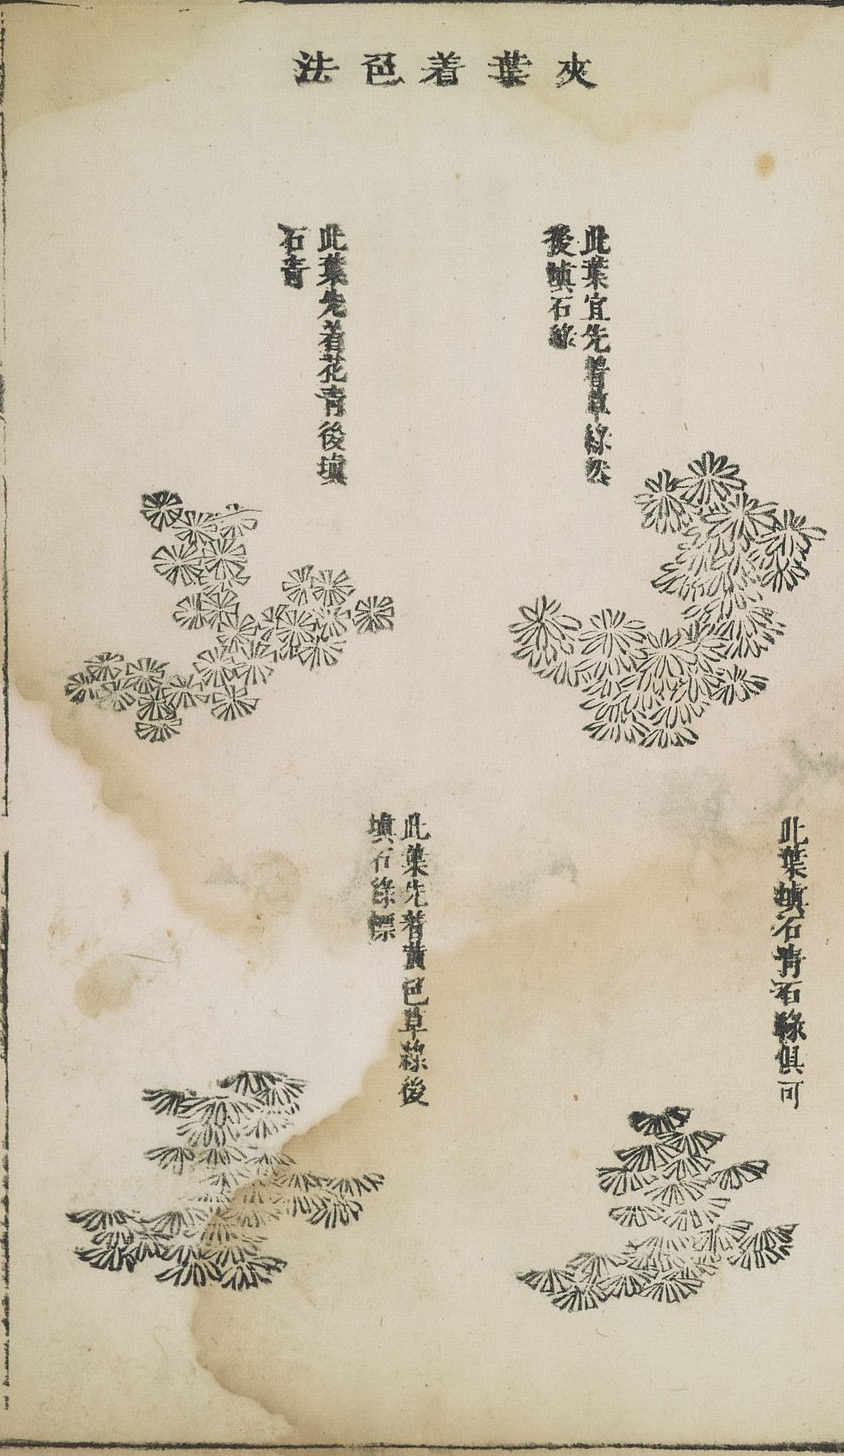 夾葉着色法
此葉宜先着草綠然
後填石綠
此葉先着花青後填
石青
此葉填石青石綠俱可
此葉先着黃色草綠後
填石綠標